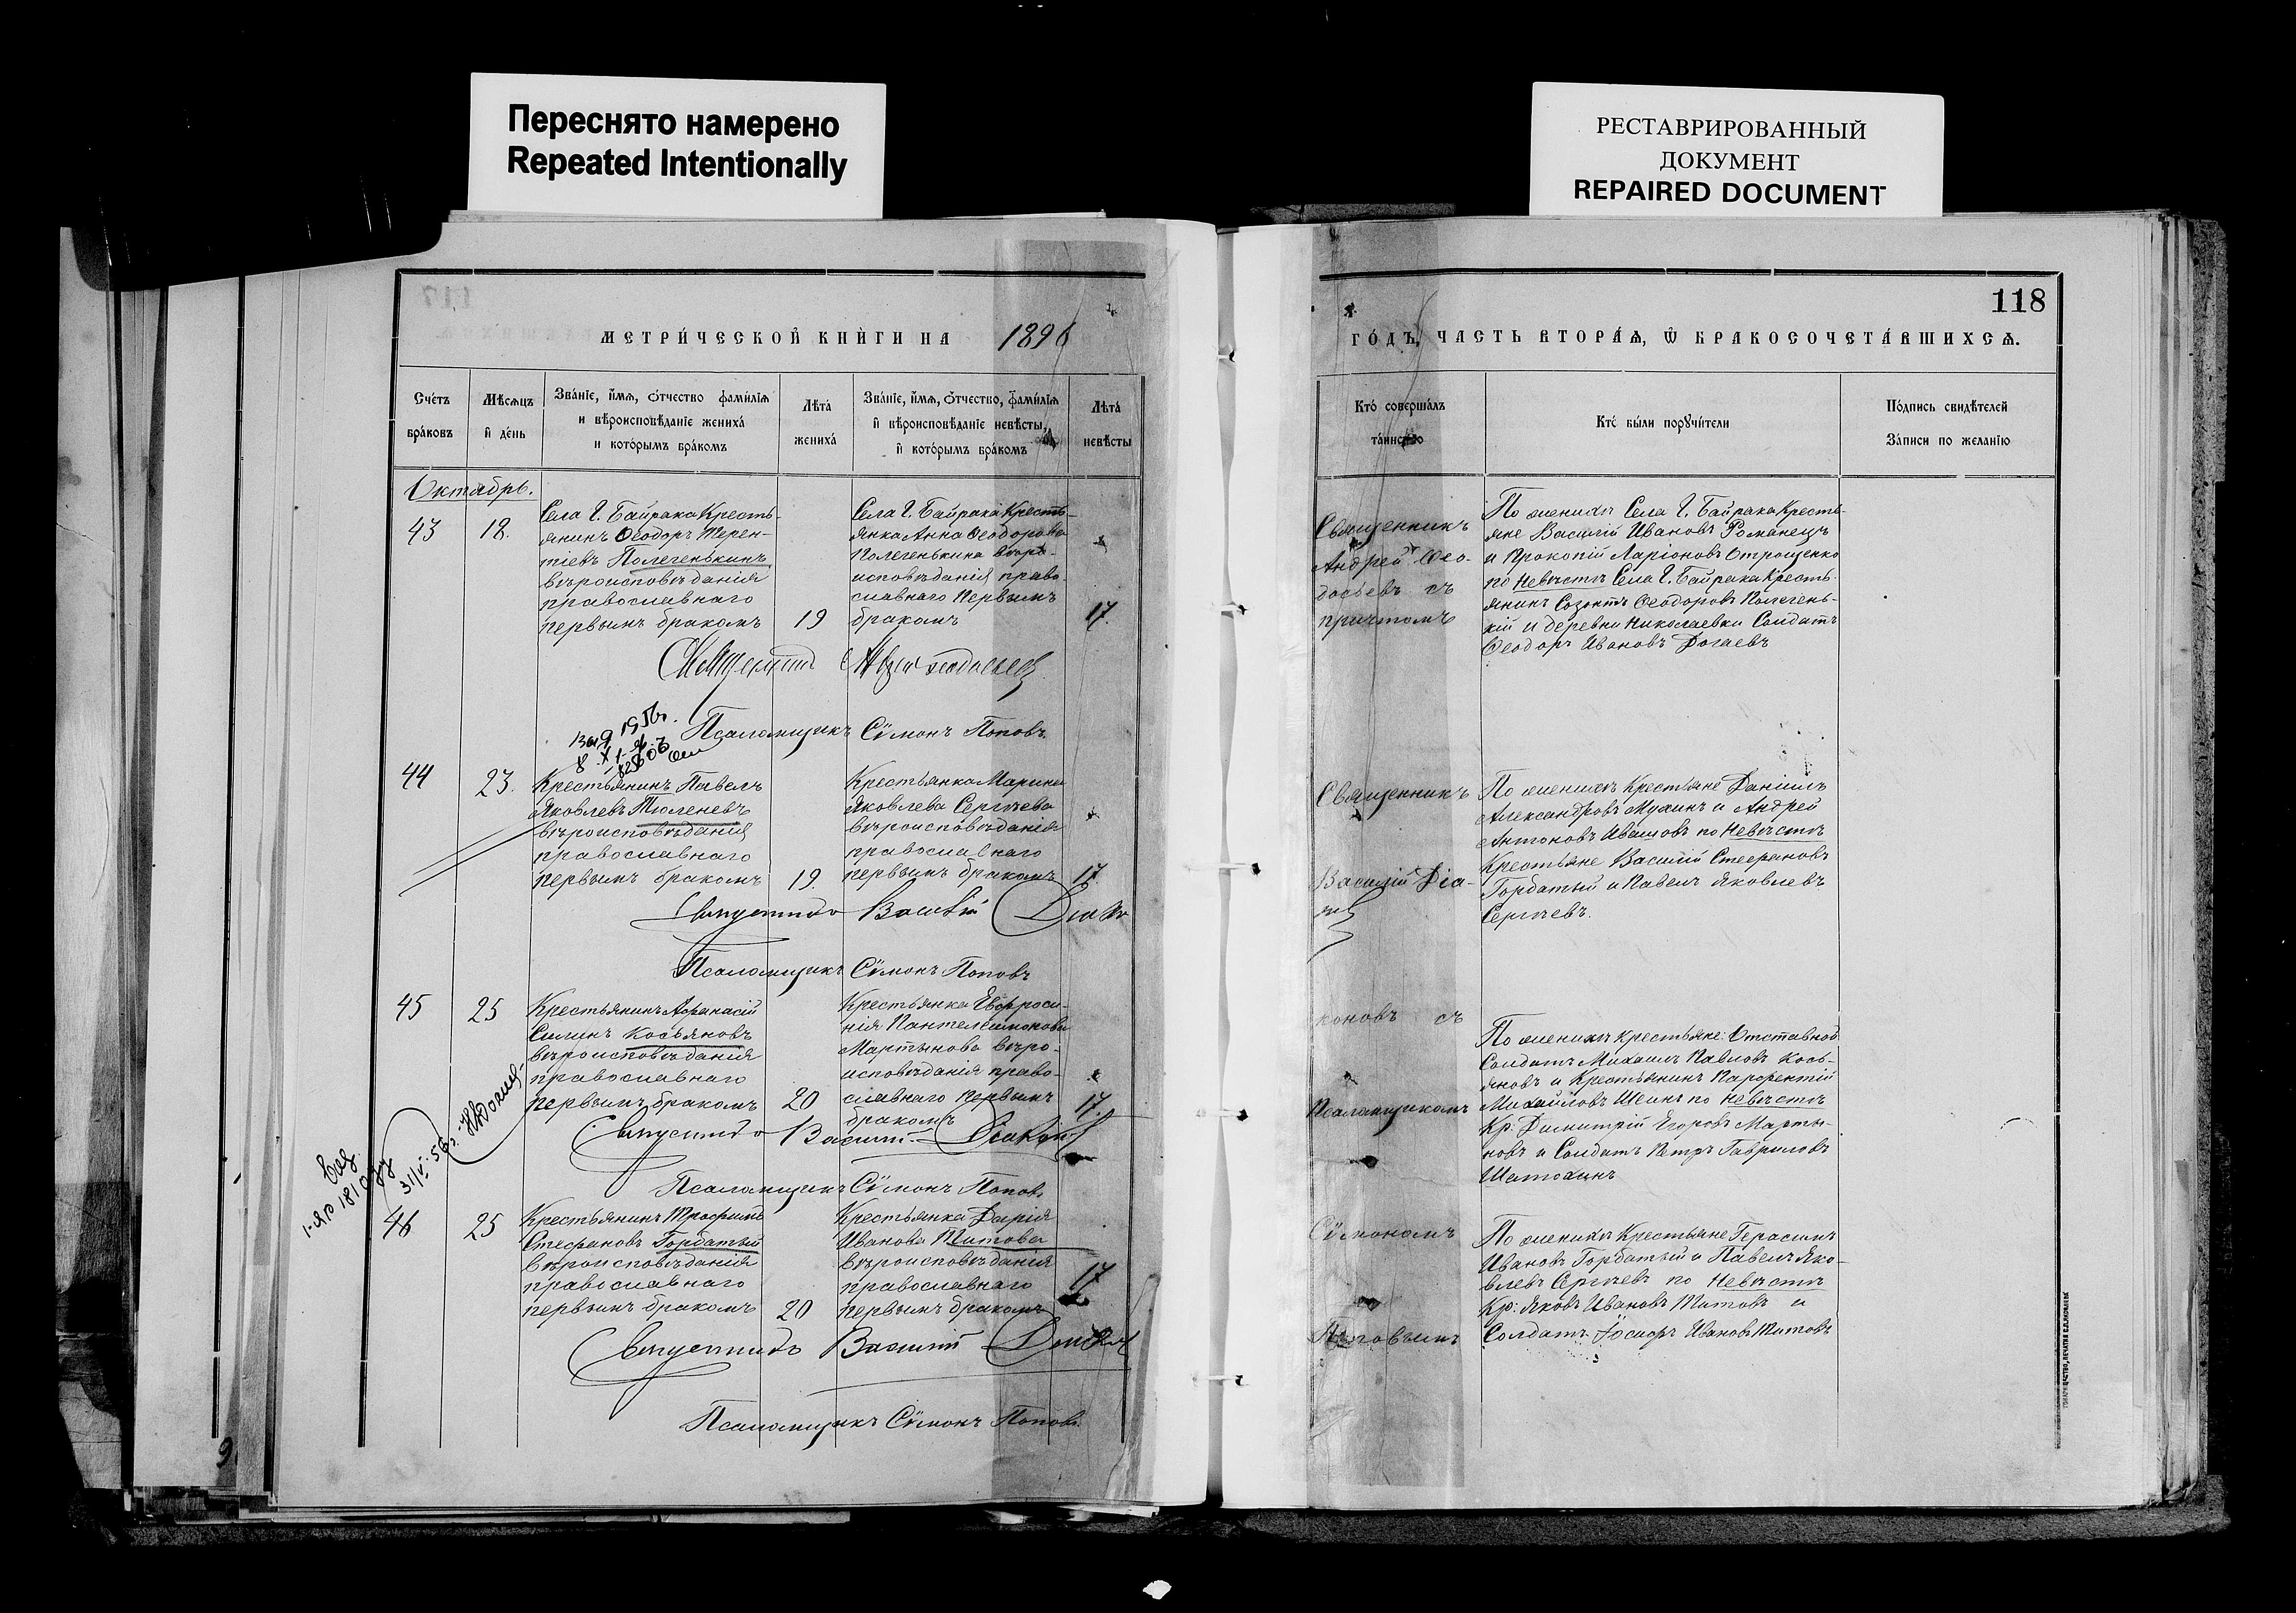 Переснято намерено
Repeated Intentionally
РЕСТАВРИРОВАННЫЙ
ДОКУМЕНТ
REPAIRED DOCUMENT
118
МЕТРИ́ЧЕСКОЙ КНИ́ГИ НА 1896
ГО́ДЪ, ЧАСТЬ ВТОРА́Ѧ, Ѿ БРАКОСОЧЕТА́ВШИХСѦ.
Сче́тъ
бра́ковъ
Мѣ́сѧцъ
и҆ де́нь
Зва́нїе, и҆́мѧ, ѻ҆́тчество фами́лїѧ
и вѣроисповѣ́данїе жениха́
и кото́рымъ бра́комъ
Лѣта́
жениха́
Зва́нїе, и҆́мѧ, ѻ҆́тчество, фами́лїѧ
и҆ вѣроисповѣ́данїе невѣ́сты,
и҆ кото́рымъ бра́комъ
Лѣта́
невѣ́сты
Кто́ соверша́лъ
та́инство
Кто́ бы́ли порꙋчи́тели
По́дпись свидѣ́телей
За́писи по жела́нїю
Октябрь.
43
18.
Села Г. Байрака Кресть-
янинъ Ѳеодоръ Терен-
тіевъ Полегенькинъ
вѣроисповѣданія
православнаго
первымъ бракомъ
19
Села Г. Байрака Кресть-
янка Анна Ѳеодорова
Полегенькина вѣро-
исповѣданія право-
славнаго первымъ
бракомъ
17.
Священникъ
Андрей Ѳео-
досьевъ съ
причтомъ
По женихѣ Села Г. Байрака Кресть-
яне Василій Ивановъ Романецъ
и Прокопій Ларіоновъ Отрощенко
по Невѣстѣ Села Г. Байрака Кресть-
янинъ Созонтъ Ѳеодоровъ Полегень-
кій и деревни Николаевки Солдатъ
Ѳеодоръ Ивановъ Догаевъ
Псаломщикъ Сѵмонъ Поповъ
44
23.
Крестьянинъ Павелъ
Яковлевъ Тюленевъ
вѣроисповѣданія
православнаго
первымъ бракомъ
19.
Крестьянка Марина
Яковлева Сергѣева
вѣроисповѣданія
православнаго
первымъ бракомъ
17.
Священникъ
Василій Діа-
По женихѣ Крестьяне Даніилъ
Александровъ Мухинъ и Андрей
Антоновъ Ивашовъ по Невѣстѣ
Крестьяне Василій Стефановъ
Горбатый и Павелъ Яковлевъ
Сергѣевъ.
Псаломщикъ Сѵмонъ Поповъ
45
25
Крестьянинъ Аѳанасій
Силинъ Косьяновъ
вѣроисповѣданія
православнаго
первымъ бракомъ
20
Крестьянка Евфроси-
нія Пантелеимонова
Мартынова вѣро-
исповѣданія право-
славнаго первымъ
бракомъ
17.
коновъ съ
Псаломщикомъ
По женихѣ крестьяне: Отставной
Солдатъ Михаилъ Павловъ Кось-
яновъ и Крестьянинъ Парфентій
Михайловъ Шеинъ по Невѣстѣ
Кр: Димитрій Егоровъ Марты-
новъ и Солдатъ Петръ Гавриловъ
Шатохинъ
Псаломщикъ Сѵмонъ Поповъ
46
25
Крестьянинъ Трофимъ
Стефановъ Горбатый
вѣроисповѣданія
православнаго
первымъ бракомъ
20
Крестьянка Дарія
Иванова Титова
вѣроисповѣданія
православнаго
первымъ бракомъ
17
Сѵмономъ
Поповымъ
По женихѣ Крестьяне Герасимъ
Ивановъ Горбатый и Павелъ Яко-
влевъ Сергѣевъ по Невѣстѣ
Кр: Яковъ Ивановъ Титовъ и
Солдатъ Іосифъ Ивановъ Титовъ
Псаломщикъ Сѵмонъ Поповъ